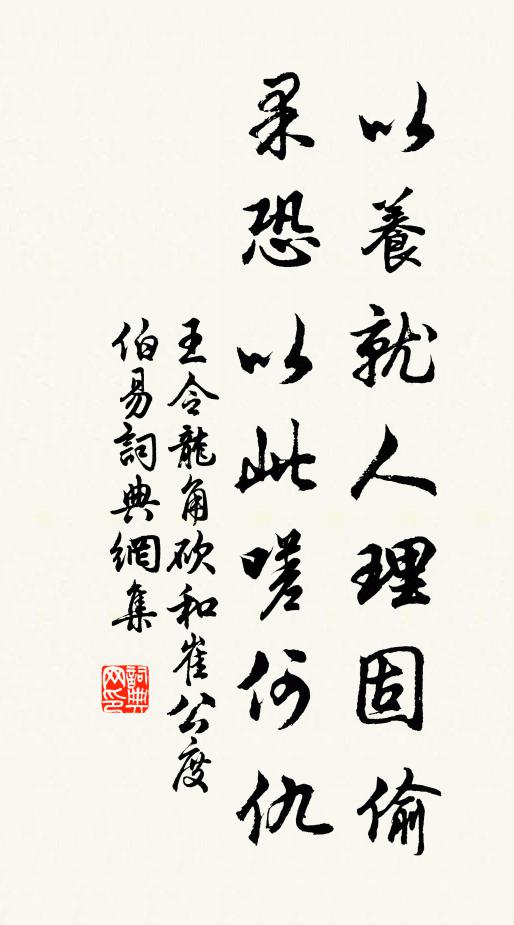 以養就人理固偷
果恐以此嗟何仇
王令龍角砍和崔公度
伯易詞典網集
詞典網印